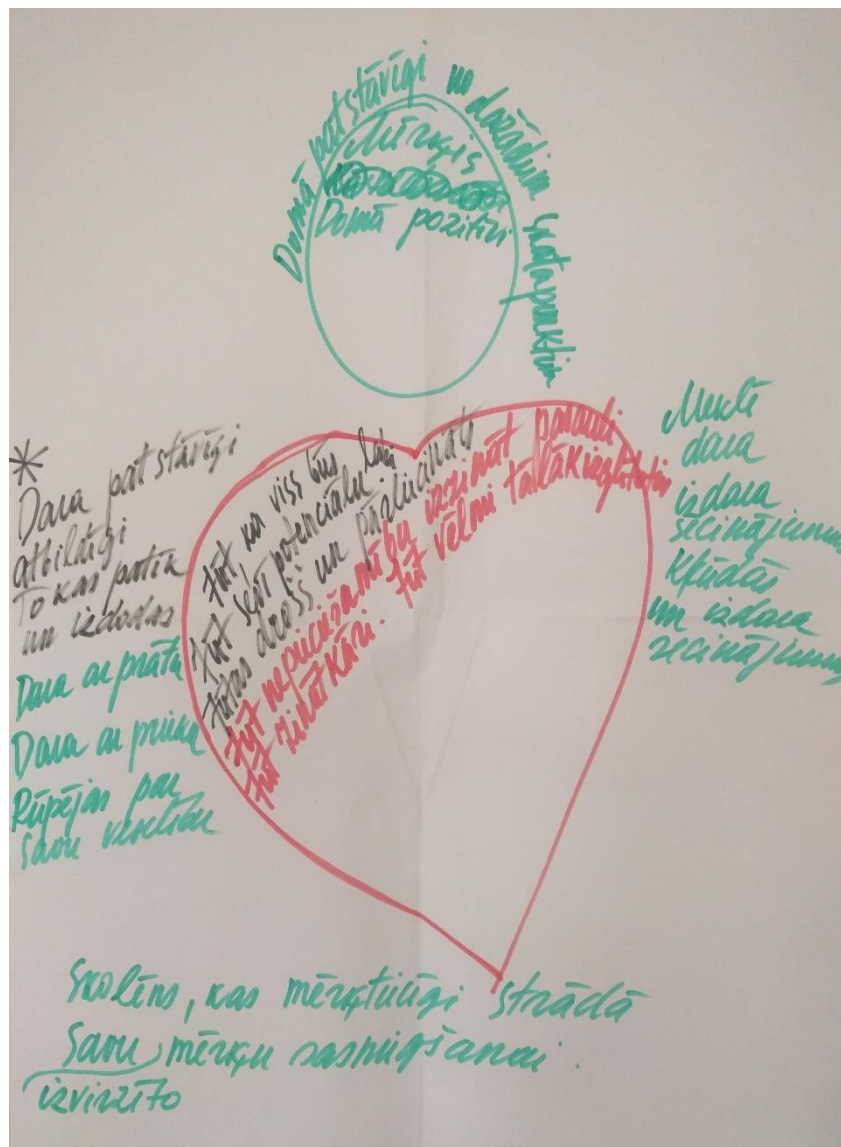 Domā patstāvīgi no dažādiem skata punktiem
Mērķis
Domā pozitīvi
*
Dara patstāvīgi
atbildīgi
To kas patīk
un izdodas
Dara ar prātu
Dara ar prieku
Rūpējas par
savu veselību
Jūt ka viss būs labi
Jūt sevī potenciālu
Jūtas drošs un pārliecināts
Jūt nepieciešamību izzināt pasauli
Jūt zinātkāri. Jūt vēlmi tālākizglītoties
Meklē
dara
izdara
secinājumus
Kļūdās
un izdara
secinājumus
Skolēns, kas mērķtiecīgi strādā
Savu mērķu sasniegšanai.
izvirzīto